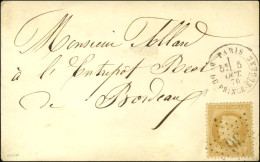 Monsieur Tolland
à l'Entrepôt Réel
de Bordeaux
PARIS
5
OCT.
70
BD DU PRINCE EUGENE